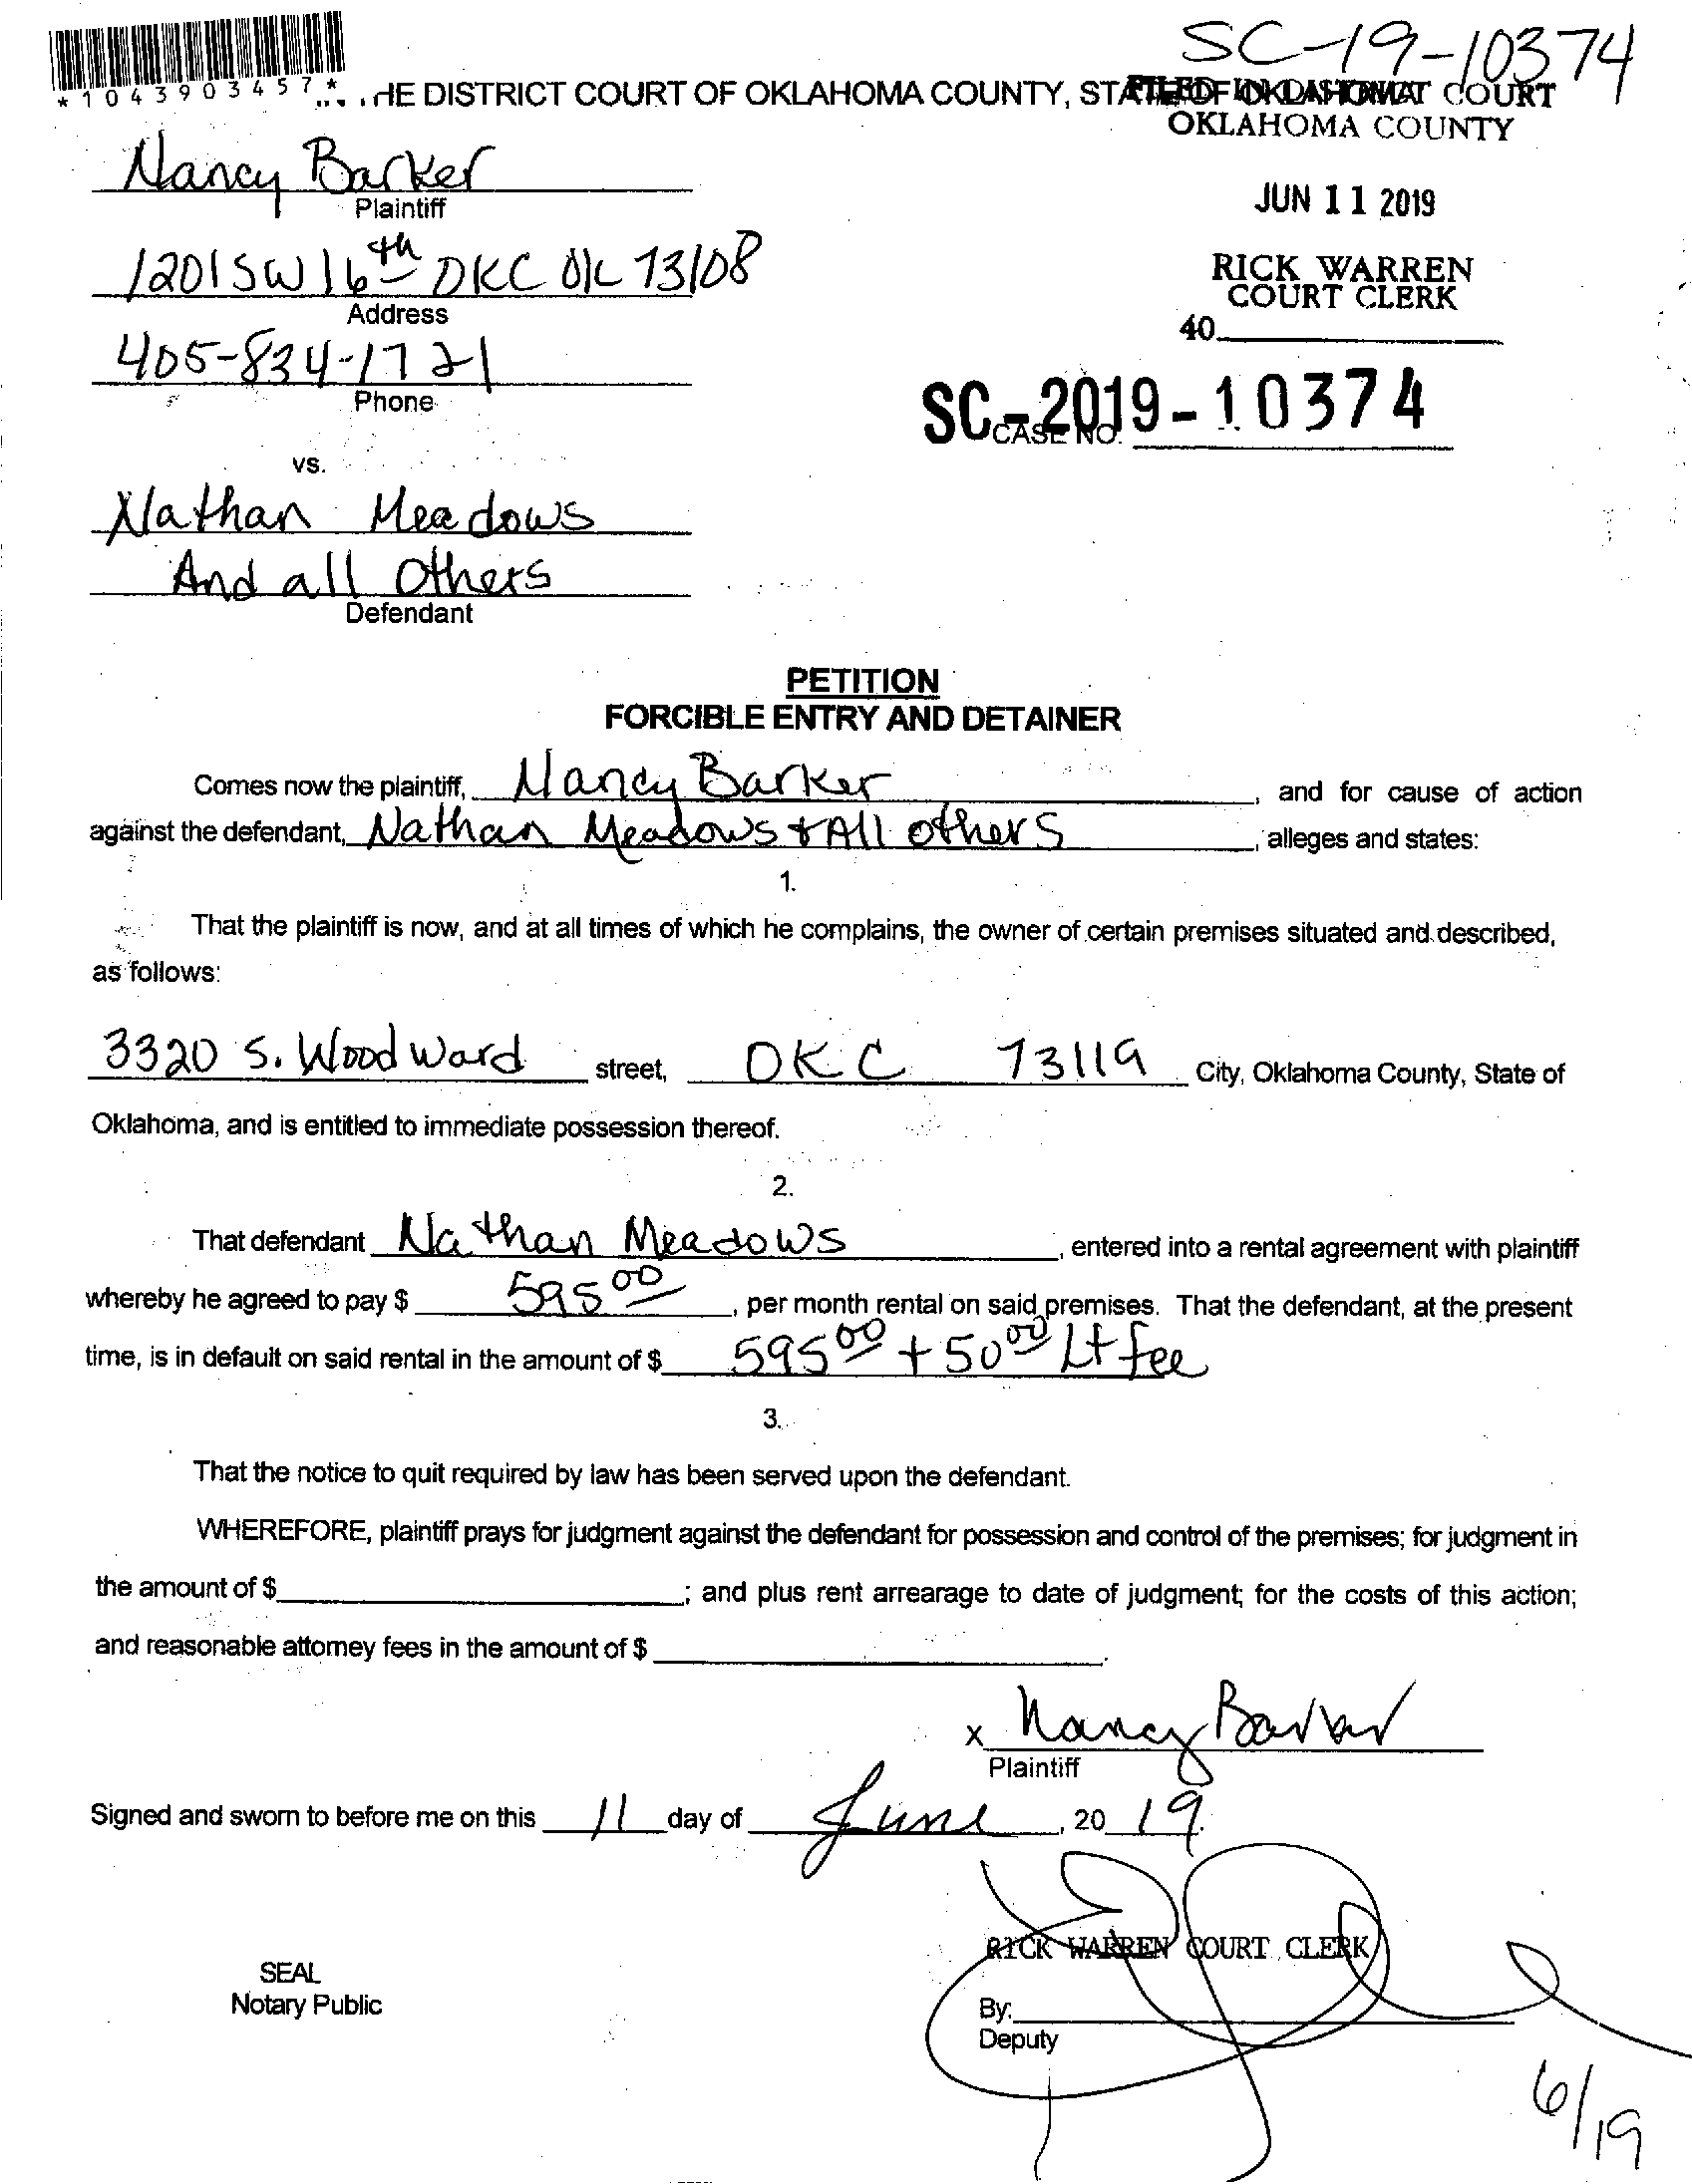 SC-19-10374
*1043903457*
HE DISTRICT COURT OF OKLAHOMA COUNTY, STATE OF OKLAHOMA
FILED IN DISTRICT COURT
OKLAHOMA COUNTY
Nancy Barker
Plaintiff
JUN 11 2019
1201 SW 16th OKC OK 73108
Address
RICK WARREN
COURT CLERK
40
405-834-1721
Phone
SC-2019-10374
CASE NO.
vs.
Nathan Meadows
And all Others
Defendant
PETITION
FORCIBLE ENTRY AND DETAINER
Comes now the plaintiff, Nancy Barker, and for cause of action
against the defendant, Nathan Meadows + All others, alleges and states:
1.
That the plaintiff is now, and at all times of which he complains, the owner of certain premises situated and described,
as follows:
3320 S. Woodward street, OKC 73119 City, Oklahoma County, State of
Oklahoma, and is entitled to immediate possession thereof.
2.
That defendant Nathan Meadows, entered into a rental agreement with plaintiff
whereby he agreed to pay $ 595 00, per month rental on said premises. That the defendant, at the present
time, is in default on said rental in the amount of $ 595 00 + 50 00 Lt fee
3.
That the notice to quit required by law has been served upon the defendant.
WHEREFORE, plaintiff prays for judgment against the defendant for possession and control of the premises; for judgment in
the amount of $ ; and plus rent arrearage to date of judgment; for the costs of this action;
and reasonable attorney fees in the amount of $ .
x Nancy Barker
Plaintiff
Signed and sworn to before me on this 11 day of June, 20 19.
RICK WARREN COURT CLERK
SEAL
Notary Public
By:
Deputy
6/19